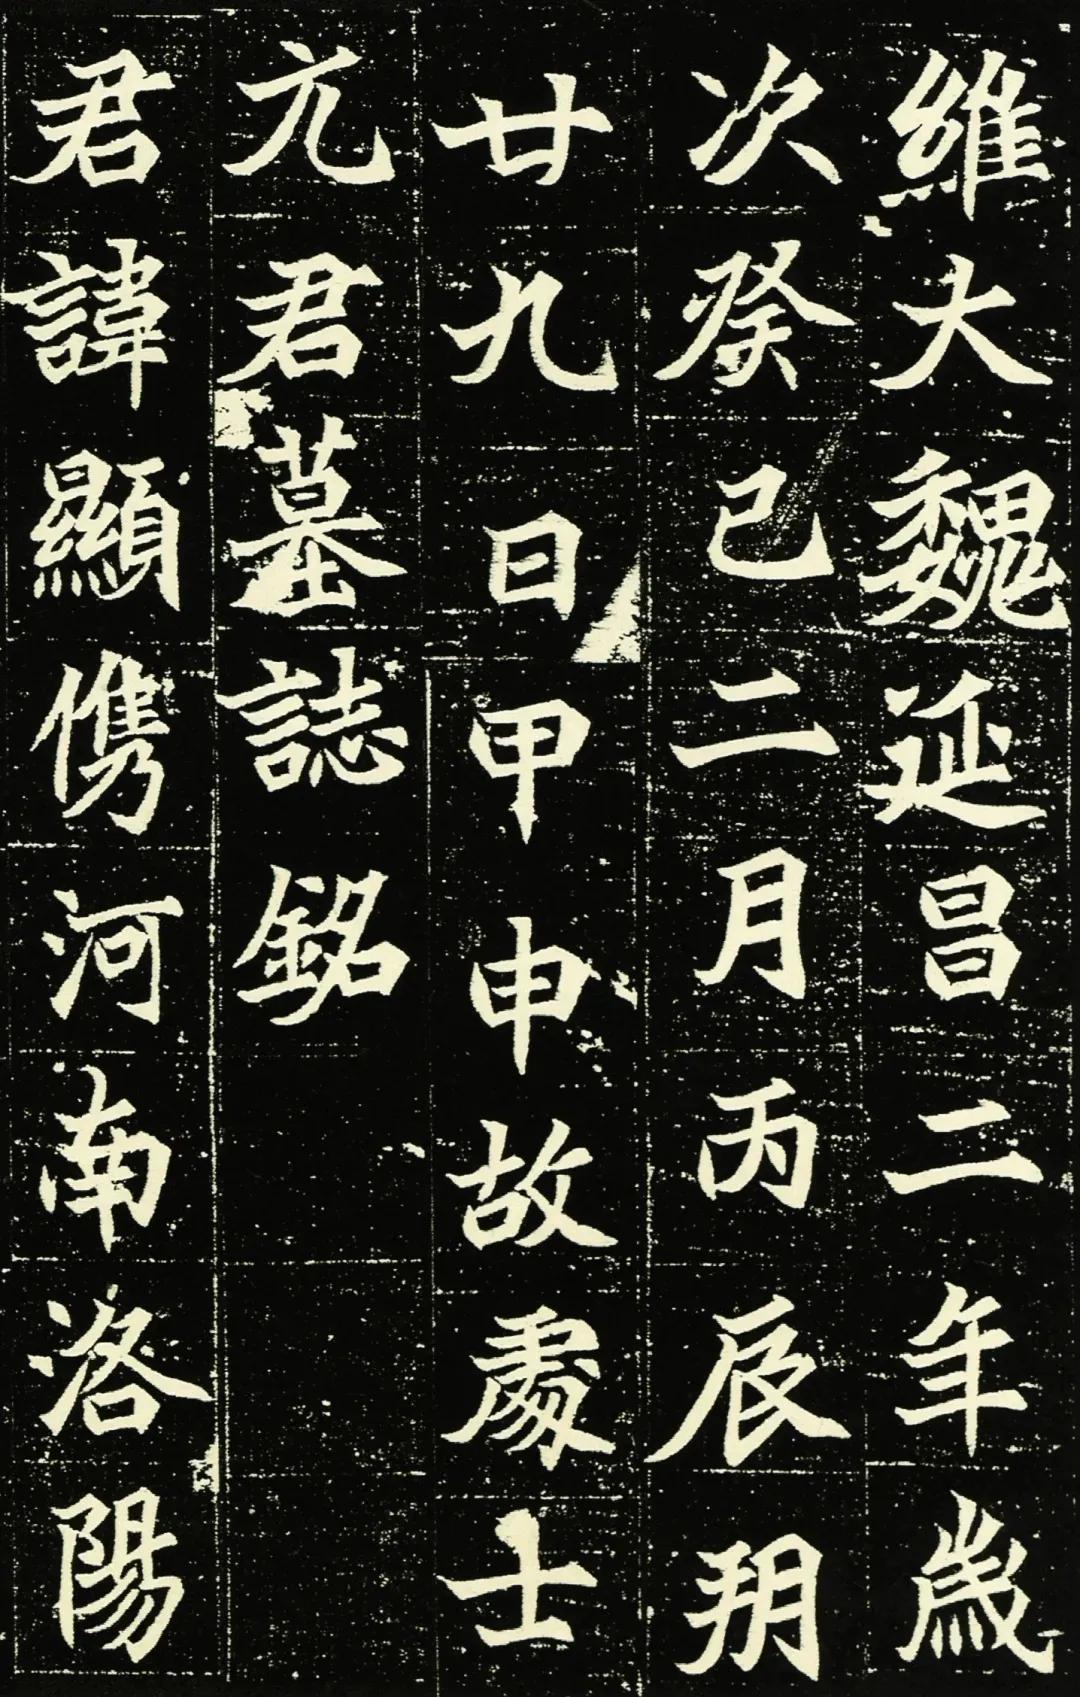 維大魏延昌二年歲
次癸巳二月丙辰朔
廿九日甲申故處士
元君墓誌銘
君諱顯儁河南洛陽